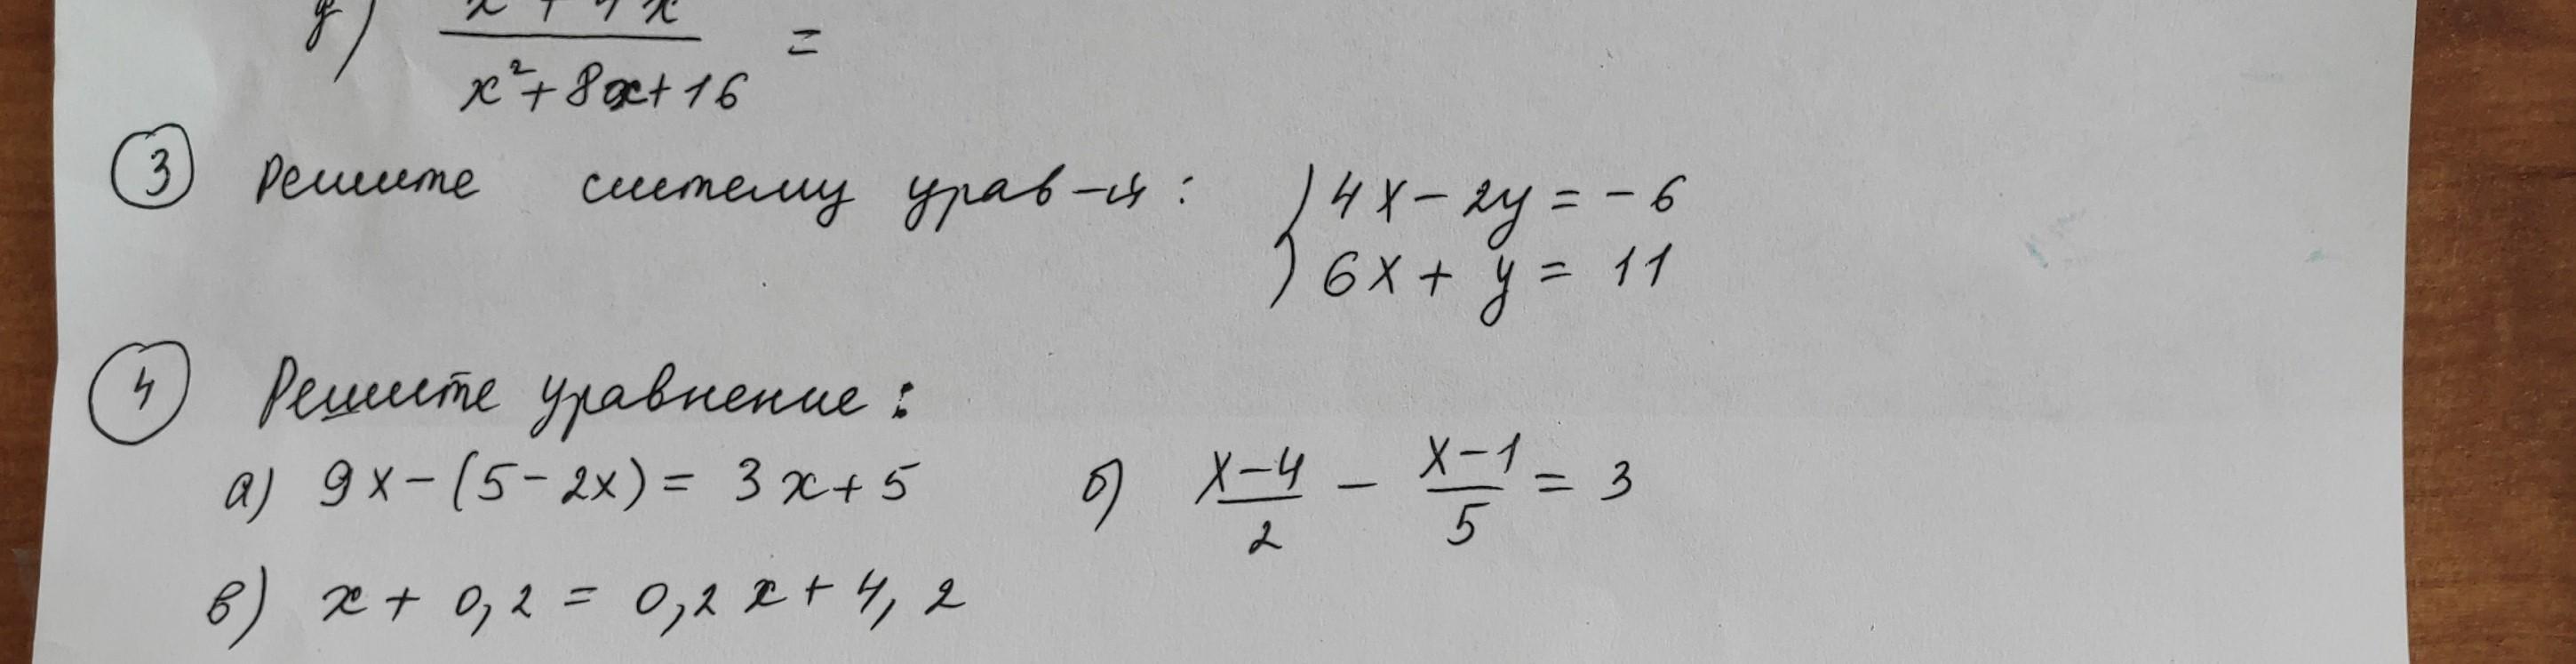 x + 4x
x²+8x+16 =
③ Решите систему урав-й: 4x-2y=-6
6x+ y = 11
④ Решите уравнение:
а) 9x-(5-2x)= 3x+5 б) x-4/2 - x-1/5 = 3
в) x + 0,2 = 0,2x + 4,2